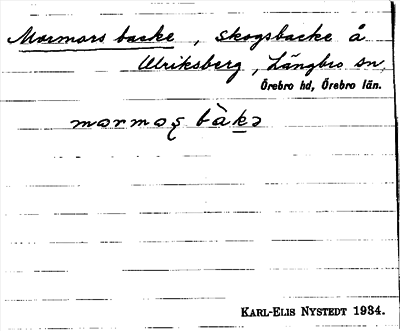 Mormors backe, skogsbacke å
Ulriksberg, Längbro sn,
Örebro hd, Örebro län.
mormoş bàkə
KARL-ELIS NYSTEDT 1934.